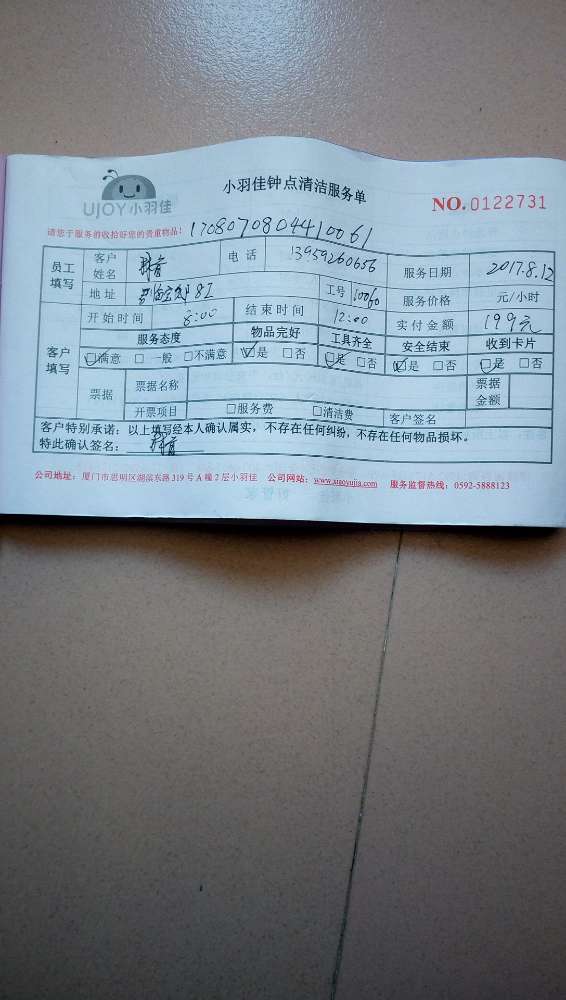 UJOY小羽佳
小羽佳钟点清洁服务单
NO.0122731
请您于服务前收拾好您的贵重物品!
17080708044410061
员工填写 客户姓名 电话 13959260656 服务日期 2017.8.12
地址 8I 工号 服务价格 元/小时
客户填写 开始时间 8:00 结束时间 12:00 实付金额 199元
服务态度 物品完好 工具齐全 安全结束 收到卡片
☑满意 □一般 □不满意 ☑是 □否 ☑是 □否 ☑是 □否 ☑是 □否
票据 票据名称 票据金额
开票项目 □服务费 □清洁费 客户签名
客户特别承诺:以上填写经本人确认属实,不存在任何纠纷,不存在任何物品损坏。
特此确认签名:
公司地址:厦门市思明区湖滨东路319号A幢2层小羽佳 公司网站:www.xiaoyujia.com 服务监督热线:0592-5888123